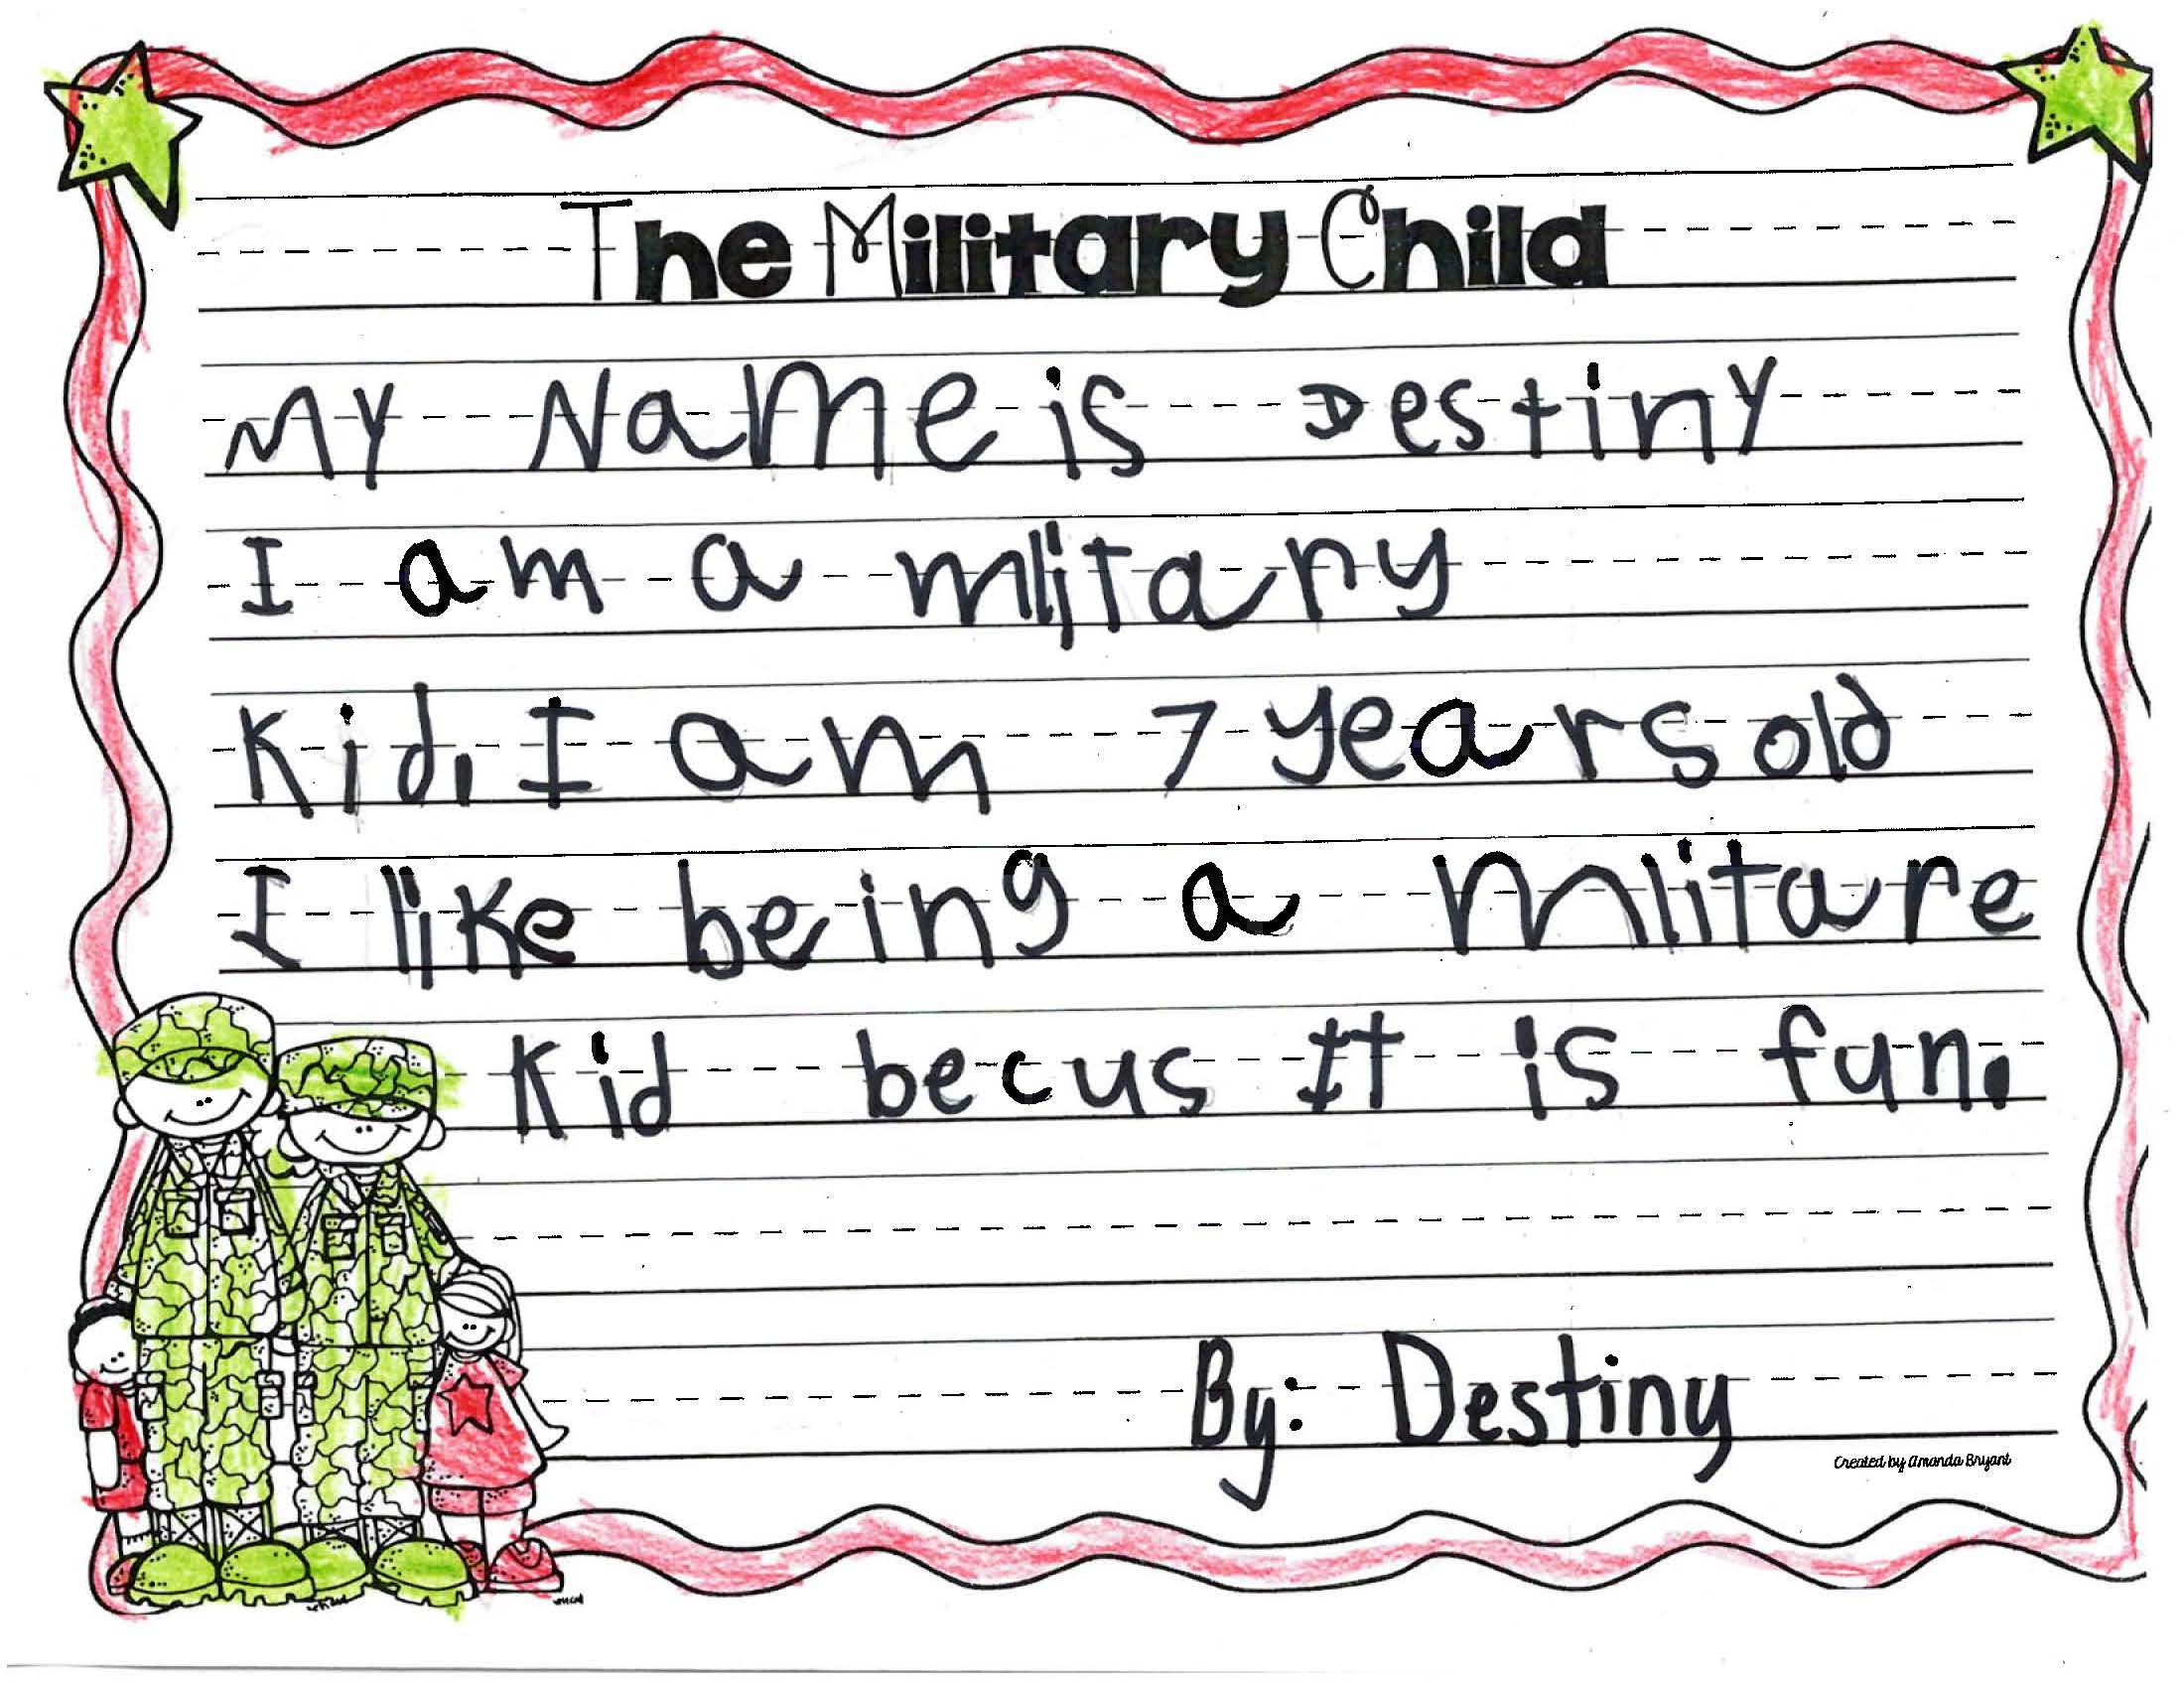 The Military Child
My Name is Destiny
I am a mlitary
Kid. I am 7 years old
I like being a Mlitare
Kid becus It is fun.
By: Destiny
Created by Amanda Bryant